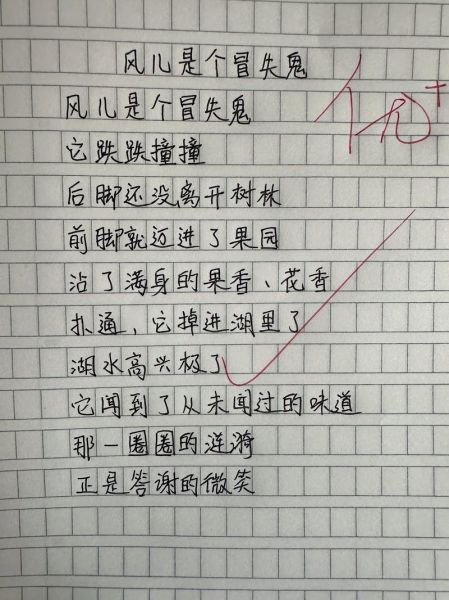 风儿是个冒失鬼
风儿是个冒失鬼
它跌跌撞撞
后脚还没离开树林
前脚就迈进了果园
沾了满身的果香、花香
扑通，它掉进湖里了
湖水高兴极了
它闻到了从未闻过的味道
那一圈圈的涟漪
正是答谢的微笑
优+